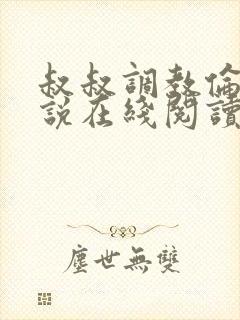 叔叔調教倫
說在綫閱讀
塵世無雙